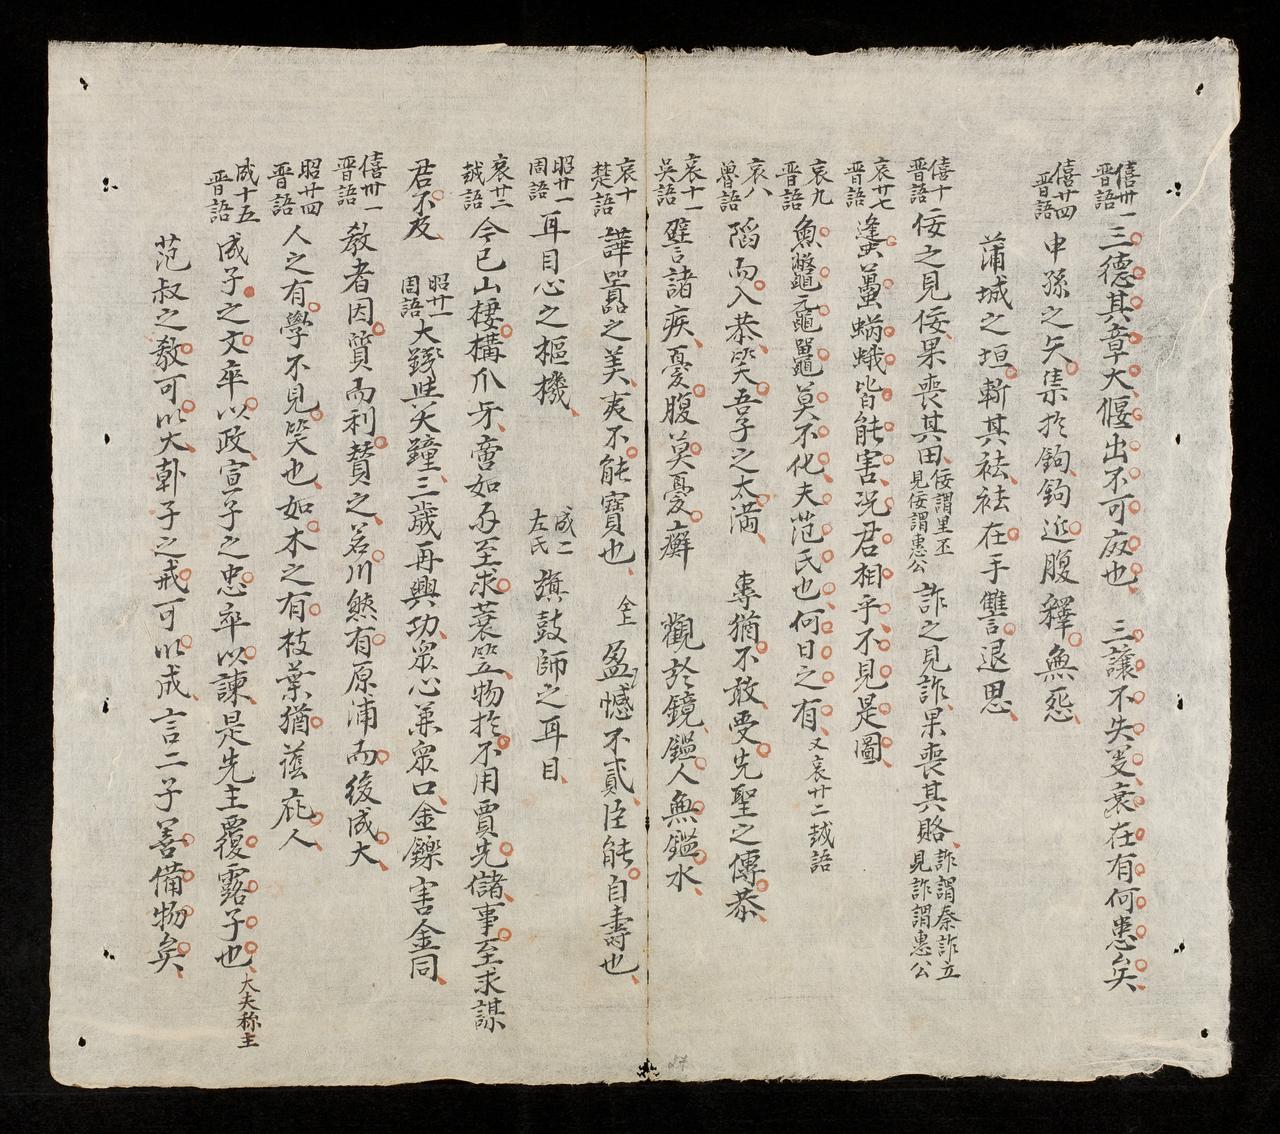 僖卅一晋語 三德其章大偃出不可癈也 三讓不失义衰在有何患矣
僖廿四晋語 申孫之矢集於鉤鉤近腹釋無怨
蒲城之垣斬其袪袪在手讐言退思
僖十一晋語 佞之見佞果喪其田 佞謂里丕見佞謂惠公 詐之見詐果喪其賂 詐謂秦詐立見詐謂惠公
哀廿七晋語 逢蚩蠆蝸蛾皆能害况君相乎不見是圖
哀九晋語 魚鱉黿鼉莫不化夫范氏也何日之有 又哀廿二越語
哀八魯語 陷而入恭笑吾子之太満 專猶不敢受先聖之傳恭
哀十一吳語 譬諸疾憂腹莫憂癬 觀於鏡鑑人無鑑水
哀十楚語 譁嚚之美夷不能寶也 仝上 盈憾不貳臣能自壽也
昭廿一周語 耳目心之樞機 成二左氏 旗鼓師之耳目
哀廿二越語 今已山棲構爪牙啻如何至求蓑笠物於不用賈先儲事至求謀
君不及 昭廿一周語 大錢世矢鐘三歲再興功衆心萃衆口金鑠害金同
僖卅一晋語 教者因質而利賛之若川然有原浦而後成大
昭廿四晋語 人之有學不見笑也如木之有枝葉猶蔭庇人
成十五晋語 成子之文卒以政宣子之忠卒以諫是先主覆露子也 大夫称主
范叔之教可以大韓子之戒可以成言二子善備物矣